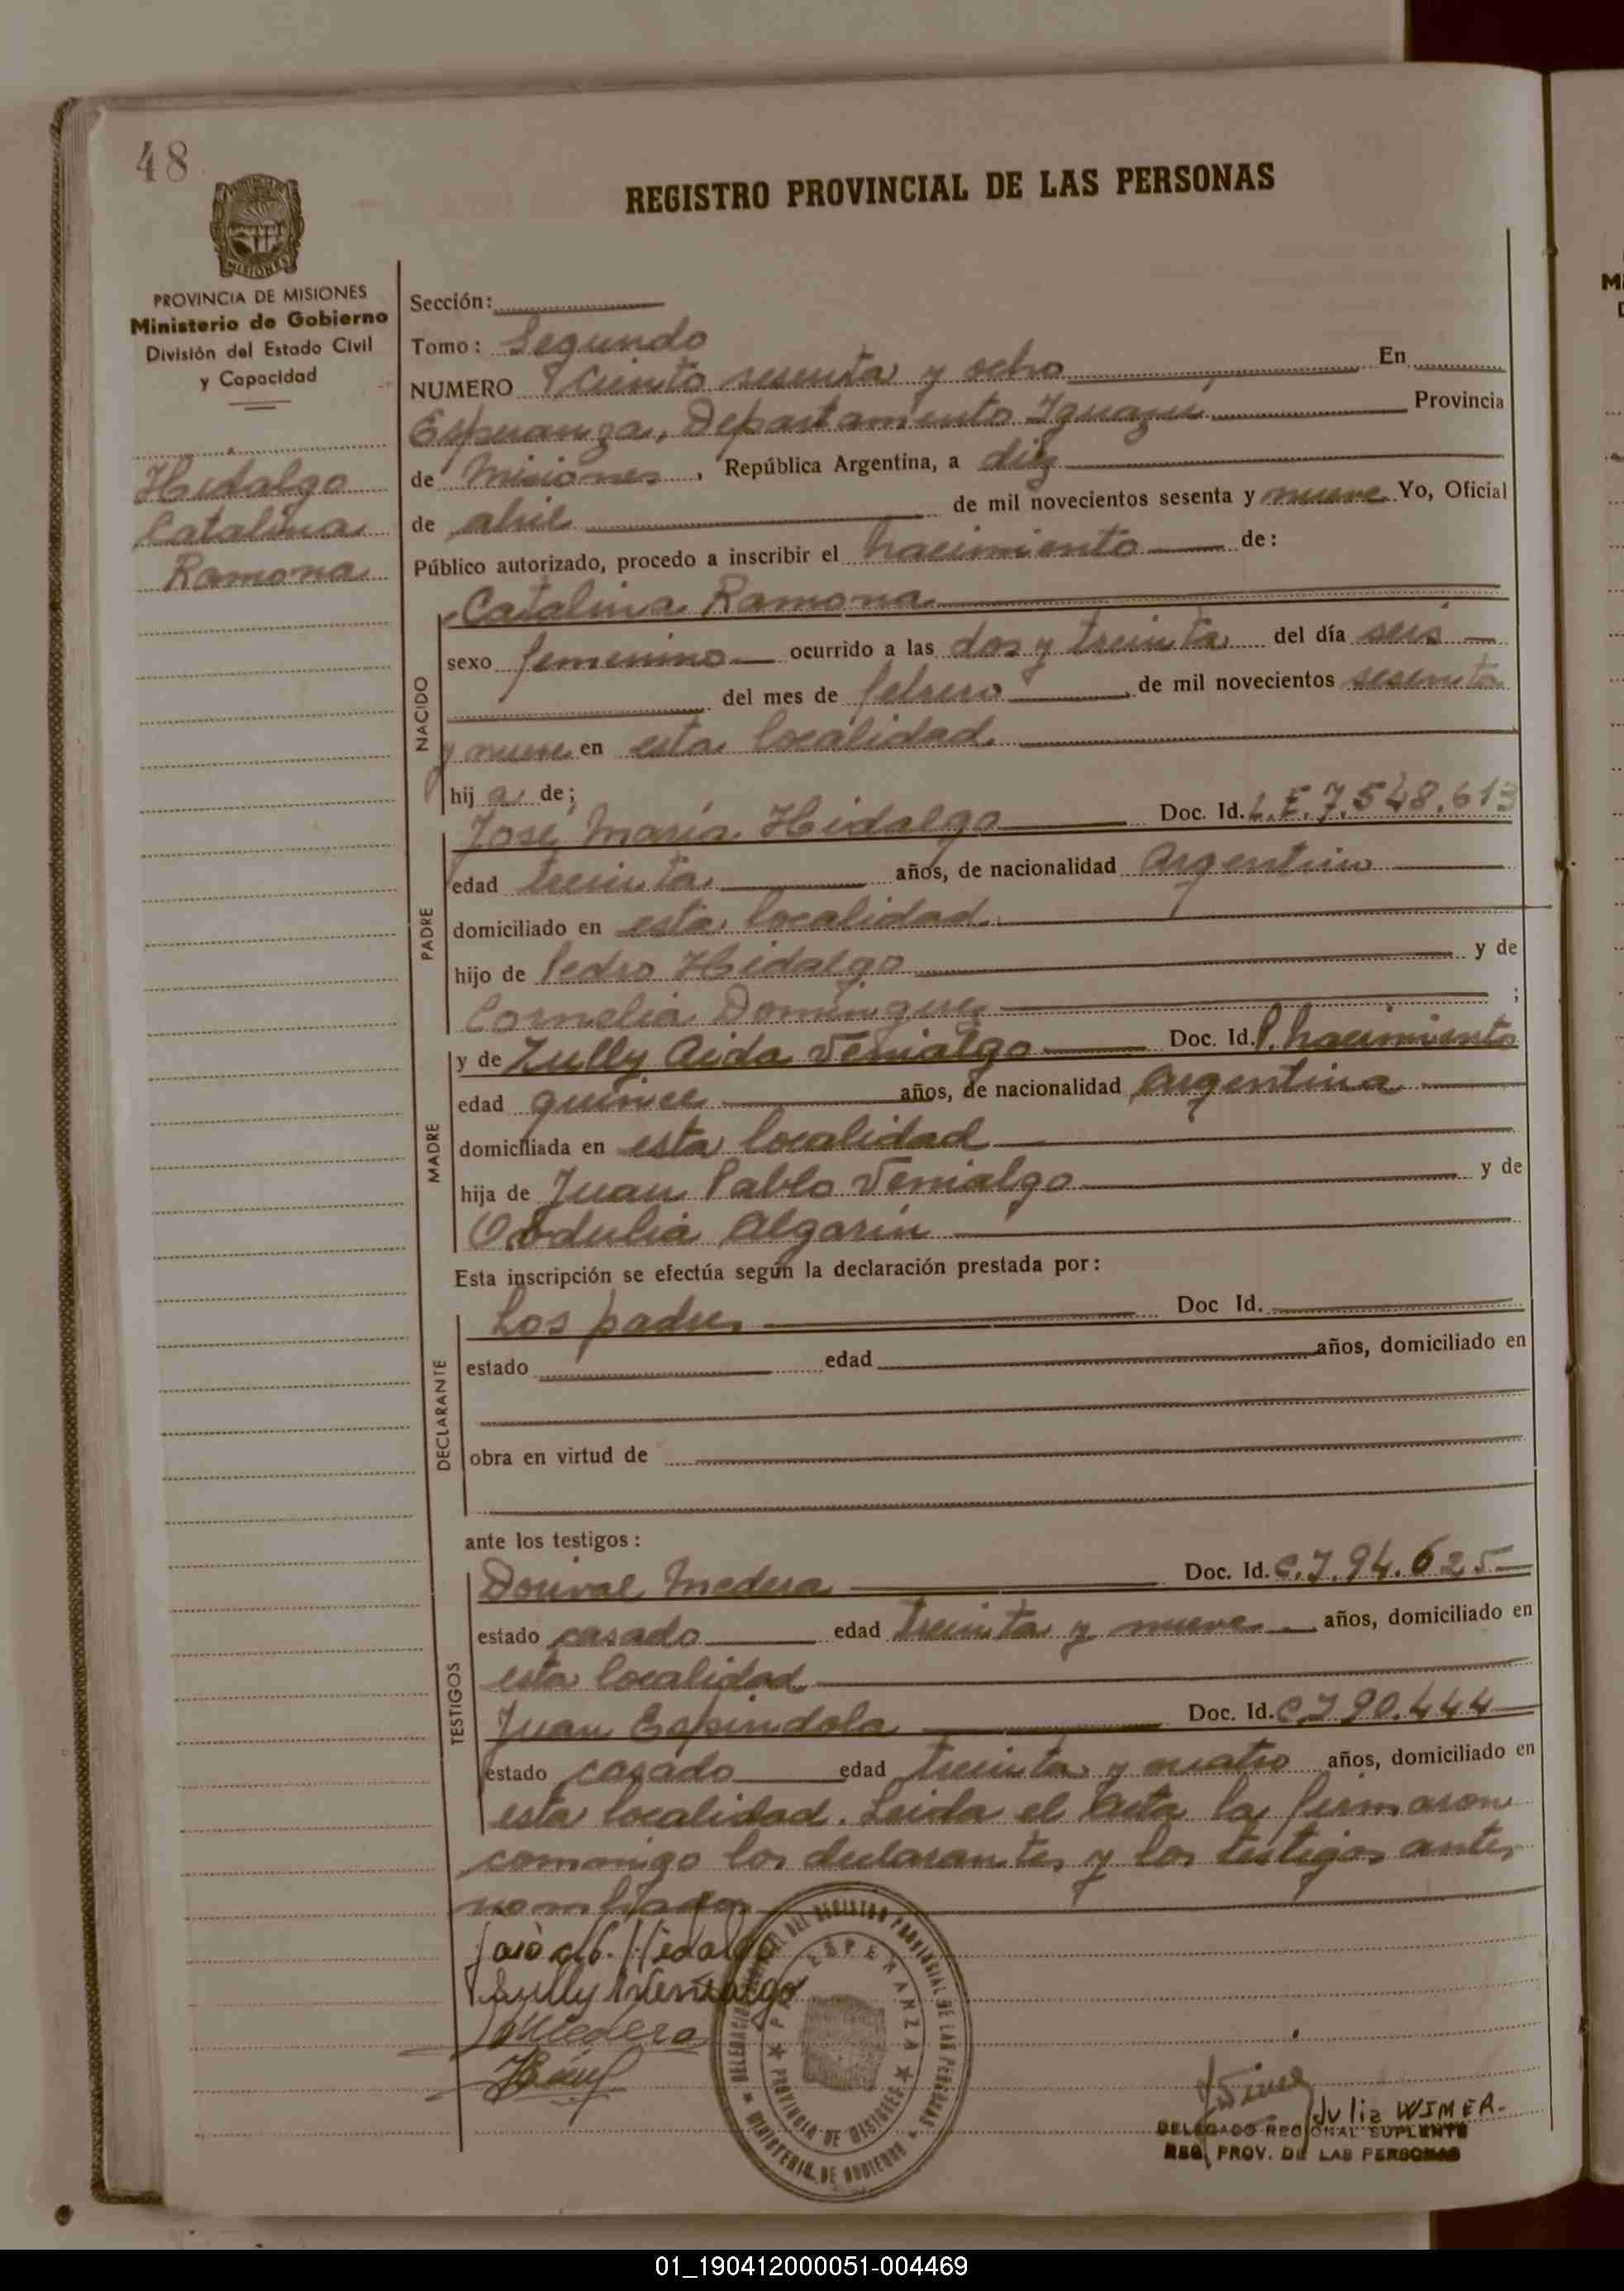 48
REGISTRO PROVINCIAL DE LAS PERSONAS
MISIONES
PROVINCIA DE MISIONES
Ministerio de Gobierno
División del Estado Civil
y Capacidad
Hidalgo
Catalina
Ramona
Sección:
Tomo: Segundo
NUMERO Ciento sesenta y ocho En
Esperanza, Departamento Iguazú Provincia
de Misiones, República Argentina, a diez
de abril de mil novecientos sesenta y nueve Yo, Oficial
Público autorizado, procedo a inscribir el nacimiento de:
NACIDO
Catalina Ramona
sexo femenino ocurrido a las dos y treinta del día seis
del mes de febrero, de mil novecientos sesenta
y nueve en esta localidad
hij a de;
PADRE
José María Hidalgo Doc. Id. L.E. 7.548.613
edad treinta años, de nacionalidad Argentino
domiciliado en esta localidad
hijo de Pedro Hidalgo y de
Cornelia Domínguez ;
MADRE
y de Zully Aida Venialgo Doc. Id. P. nacimiento
edad quince años, de nacionalidad Argentina
domiciliada en esta localidad
hija de Juan Pablo Venialgo y de
Obdulia Algarín
Esta inscripción se efectúa según la declaración prestada por:
DECLARANTE
Los padres Doc Id.
estado edad años, domiciliado en
obra en virtud de
ante los testigos:
TESTIGOS
Dorival Medera Doc. Id. C.I. 94.625
estado casado edad treinta y nueve años, domiciliado en
esta localidad
Juan Espindola Doc. Id. C.I 90.444
estado casado edad treinta y cuatro años, domiciliado en
esta localidad. Leida el acta la firmaron
conmigo los declarantes y los testigos antes
nombrados
José M. Hidalgo
Zully A Venialgo
Medera
DEL REGISTRO PROVINCIAL DE LAS PERSONAS
ESPERANZA
PROVINCIA DE MISIONES
MINISTERIO DE GOBIERNO
Julia WIMER
DELEGADO REGIONAL SUPLENTE
REG. PROV. DE LAS PERSONAS
01_190412000051-004469